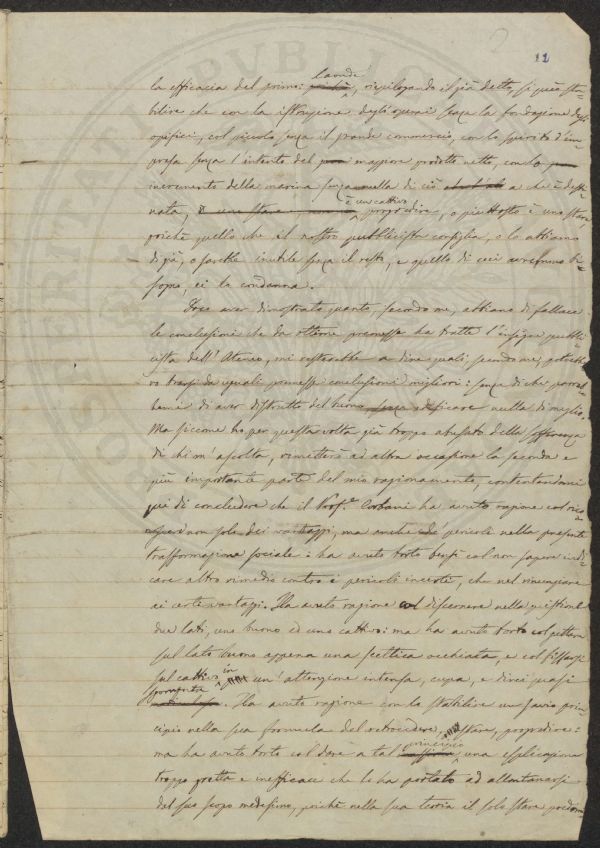 2
12
la efficacia del primo: laonde, riepilogando il già detto, si può sta-
bilire che con la istruzione degli operai senza la fondazione degli
opifici, col piccolo senza il grande commercio, con lo spirito d'im-
presa senza l'intento del maggiore prodotto netto, con lo
incremento della marina senza nulla di ciò a che è desti-
nata, è un cattivo progredire, o piuttosto è uno stare,
poichè quello che il nostro pubblicista consiglia, o lo abbiamo
di già, o sarebbe inutile senza il resto, e quello di cui avremmo bi-
sogno, ei lo condanna.
Dopo aver dimostrato quanto, secondo me, abbiano di fallace
le conclusioni che da ottime premesse ha tratte l'insigne pubbli-
cista dell'Ateneo, mi resterebbe a dire quali, secondo me, potreb-
ro trarsi da uguali premesse conclusioni migliori: senza di che parreb-
bemi di aver distrutto del buono senza edificare nulla di meglio.
Ma siccome ho per questa volta già troppo abusato della sofferenza
di chi m'ascolta, rimetterò ad altra occasione la seconda e
più importante parte del mio ragionamento, contentandomi
qui di concludere che il Prof.e Corbani ha avuto ragione col
non solo dei vantaggi, ma anche de' pericoli nella presente
trasformazione sociale: ha avuto torto bensì col non sapere indi-
care altro rimedio contro i pericoli incerti, che nel rinunziare
ai certi vantaggi. Ha avuto ragione col discernere nella quistione
due lati, uno buono ed uno cattivo: ma ha avuto torto col gettare
sul lato buono appena una scettica occhiata, e col fissarsi
sul cattivo in un'attenzione intensa, cupa, e direi quasi
spaventata. Ha avuto ragione con lo stabilire un savio prin-
cipio nella sua formula del retrocedere, stare, progredire:
ma ha avuto torto col dare a tal principio una applicazione
troppo gretta e inefficace che lo ha portato ad allontanarsi
dal suo scopo medesimo, poichè nella sua teoria il solo stare predom